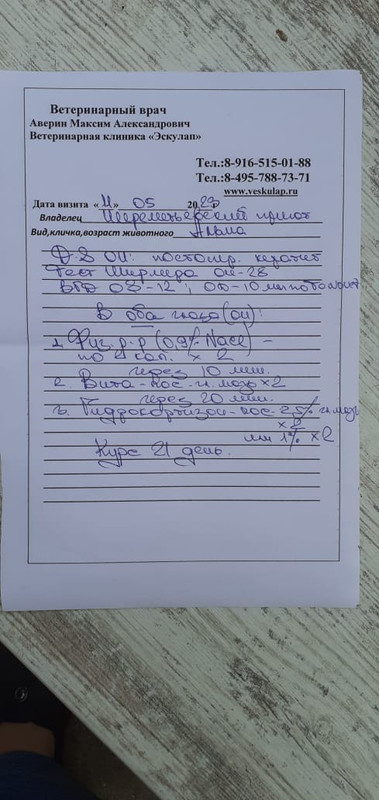 Ветеринарный врач
Аверин Максим Александрович
Ветеринарная клиника «Эскулап»
Тел.:8-916-515-01-88
8-495-788-73-71
www.veskulap.ru
Дата визита «11» 05 2023
Владелец Шереметьевский приют
Вид,кличка,возраст животного Альма
D-S OU: постомр. кератит
Тест Ширмера OU-28
ВГД OS-12; OD-10 мм
В оба глаза (OU):
1. Физ. р-р (0,9% NaCl) -
по 4 кап. x 2
через 10 мин.
2. Вита-пос-гл. мазь x2
через 20 мин.
3. Гидрокортизон-пос-2,5% гл. мазь
x 2
или 1% x2
Курс 21 день.